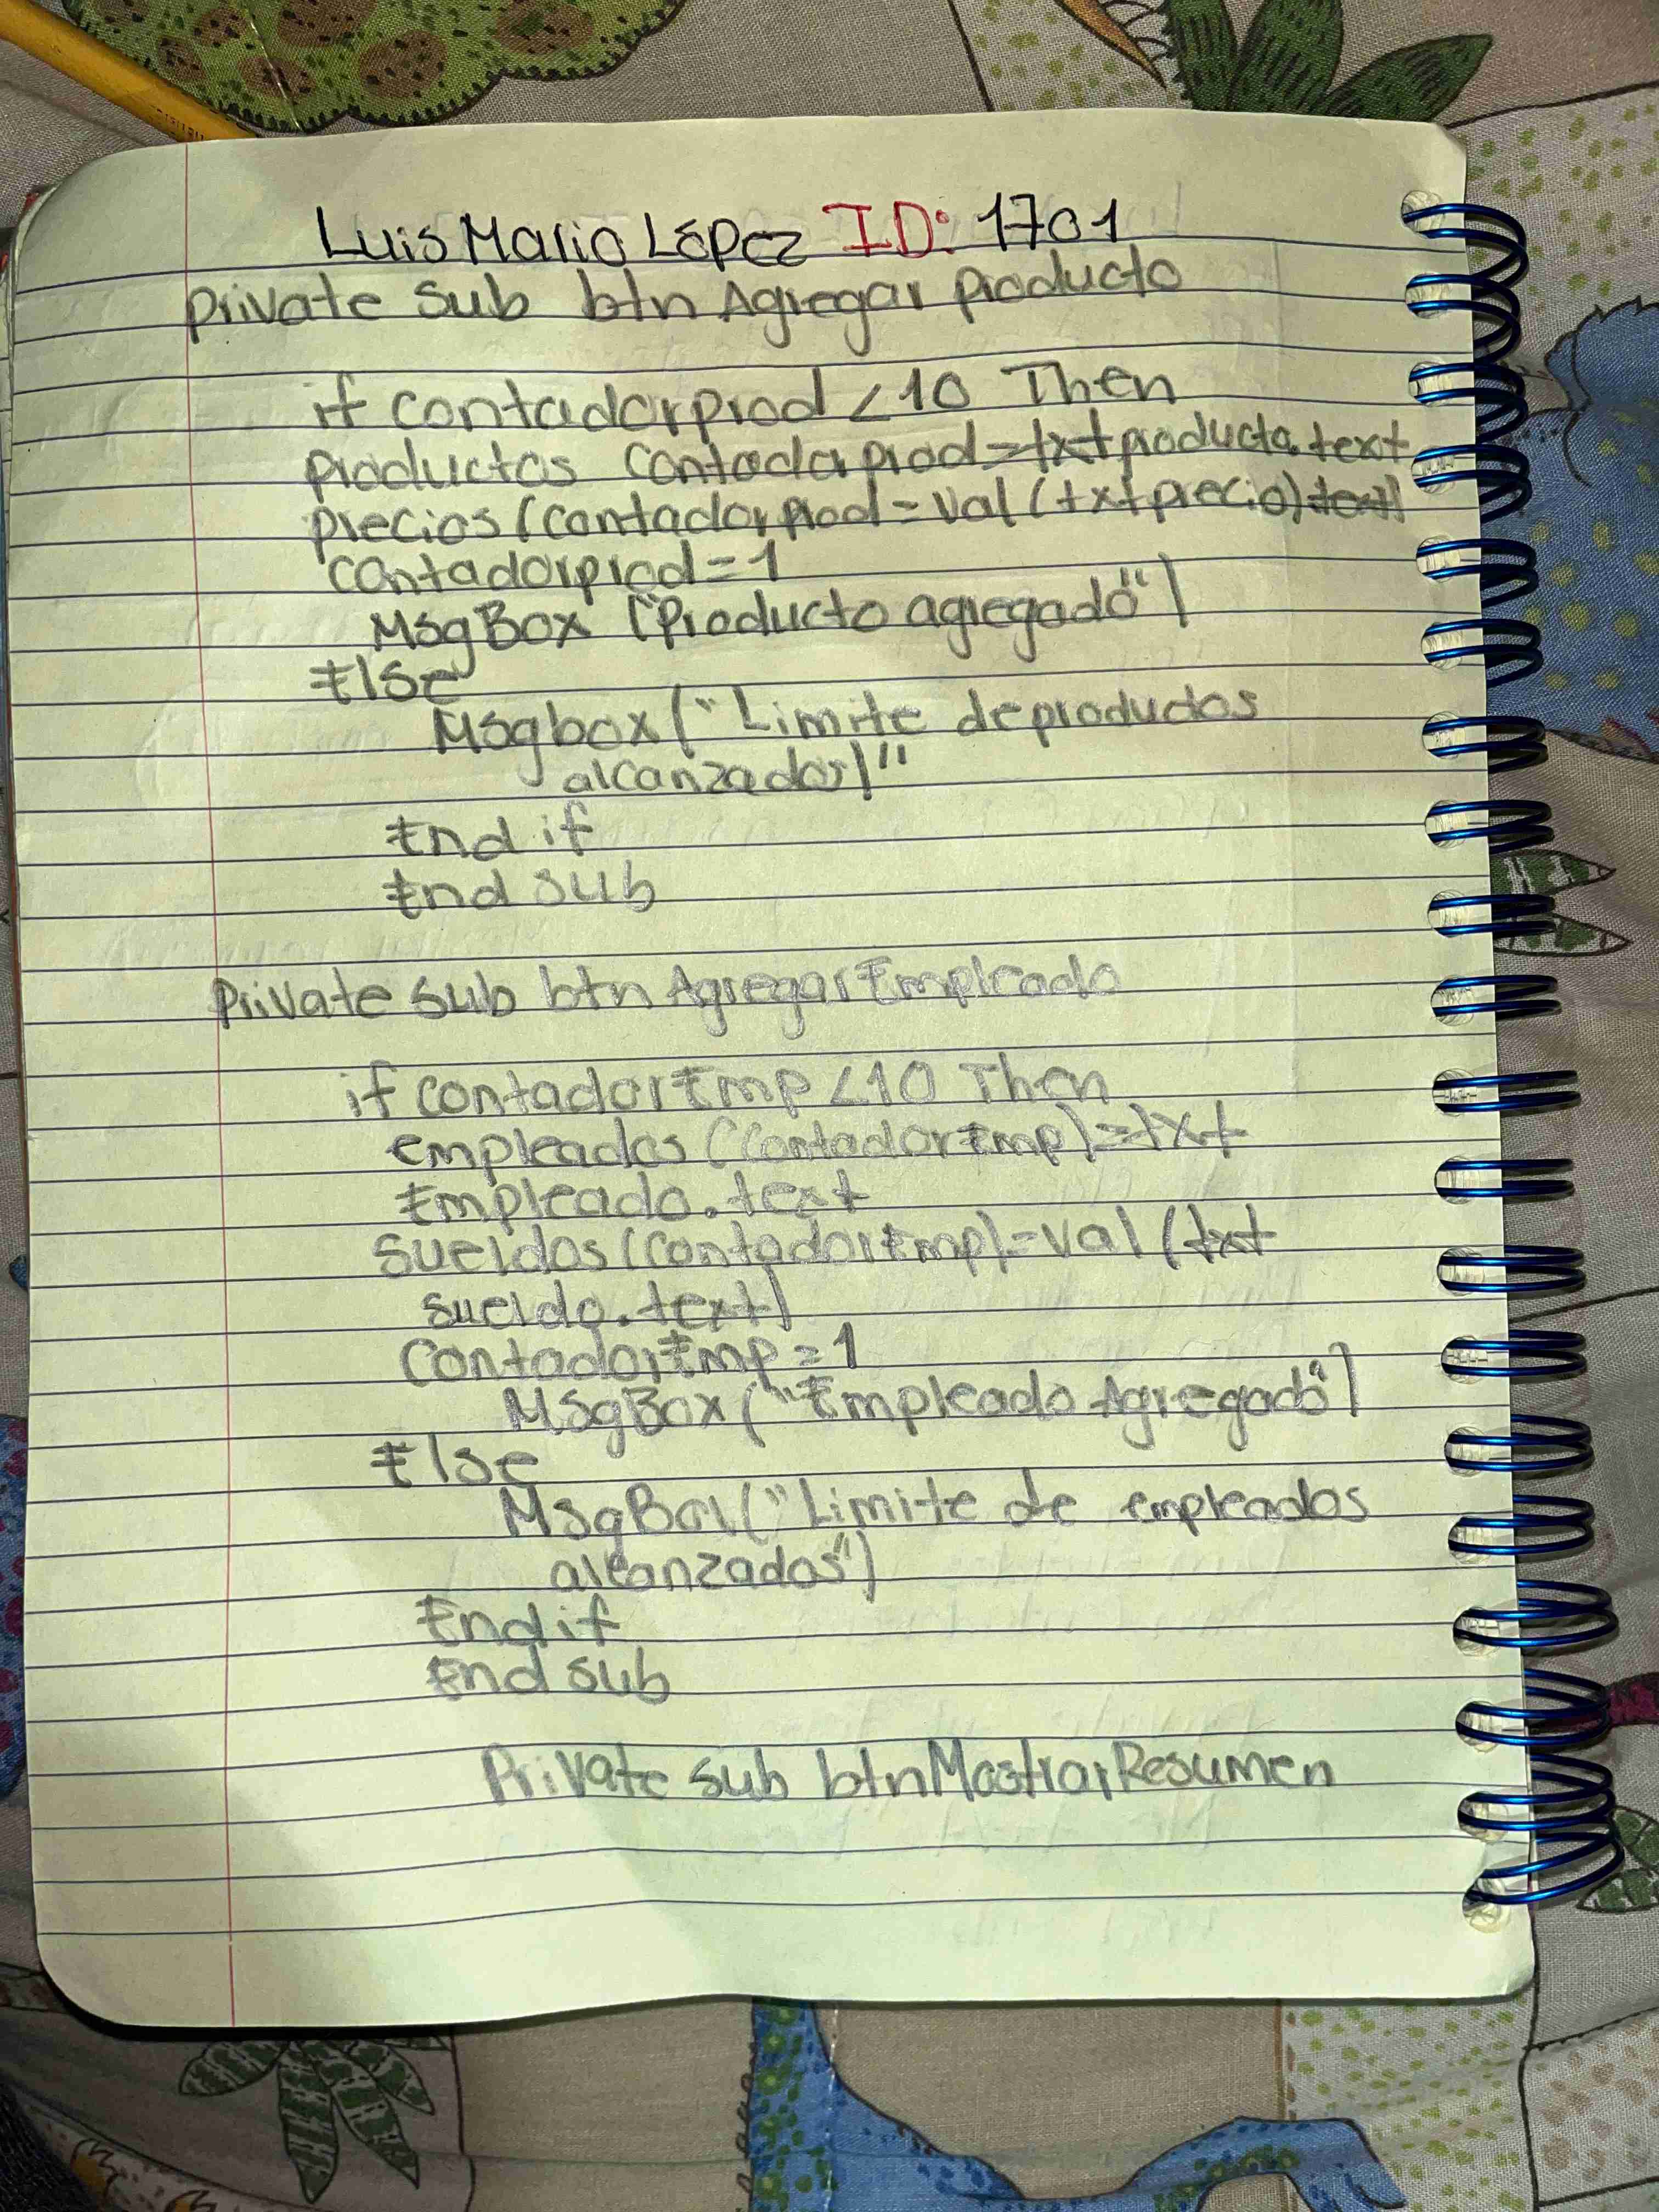 Luis Mario López ID: 1701
Private Sub btn Agregar producto
if contadorprod < 10 Then
productos contadorprod = txt producto.text
precios (contadorprod = Val (txt precio) text)
contadorprod = 1
MsgBox ("Producto agregado")
Else
Msgbox ("Limite de productos
alcanzados)"
End if
End sub
Private sub btn AgregarEmpleado
if contadorEmp < 10 Then
empleados (contadorEmp) = txt
Empleado.text
Sueldos (contadorEmp) = Val (txt
sueldo.text)
ContadorEmp = 1
MsgBox ("Empleado Agregado")
Else
MsgBox ("Limite de empleados
alcanzados")
End if
End sub
Private sub btnMostrarResumen